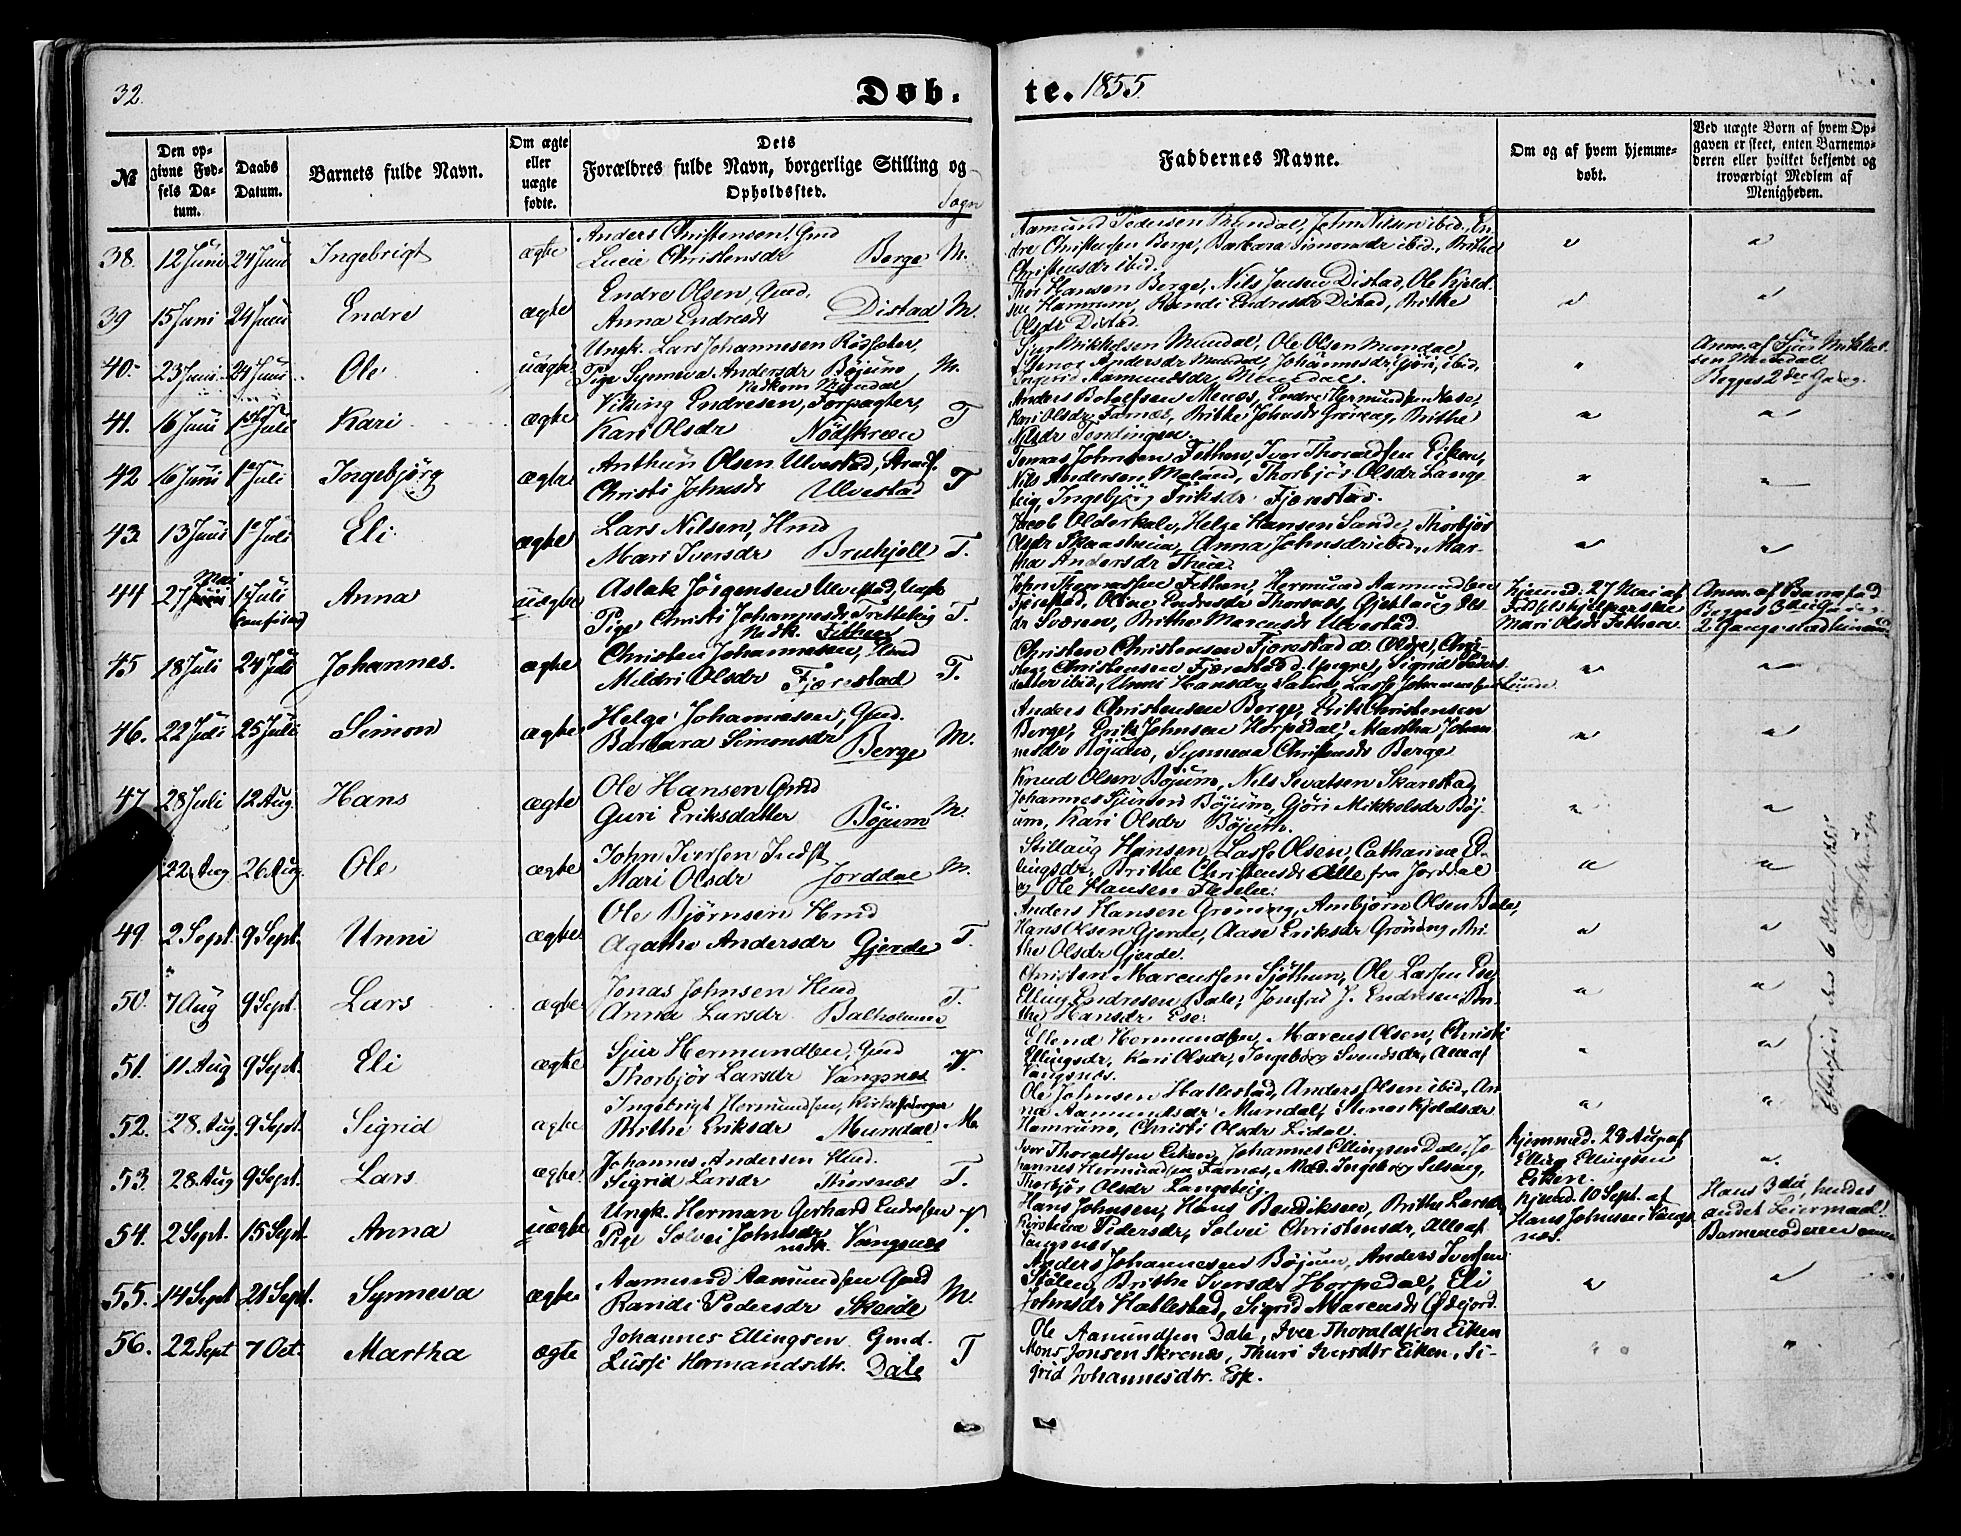 32.
Døb-
te. 1855.
№
Den opgivne Fødsels Datum.
Daabs Datum.
Barnets fulde Navn.
Om ægte eller uægte fødte.
Dets Forældres fulde Navn, borgerlige Stilling og Opholdssted.
Sogn
Faddernes Navne.
Om og af hvem hjemmedøbt.
Ved uægte Børn af hvem Opgaven er skeet, enten Barnemoderen eller hvilket bekjendt og troværdigt Medlem af Menigheden.
38. 12 Juni 24 Juni Ingebrigt ægte Anders Christensen, Gmd
Lucie Christensdr Berge M.
Aamund Pedersen Mundal, John Nilsen ibid., En-
dre Christensen Berge, Barbara Simonsdr ibid., Brithe
Christensdr ibid.
39 15 Juni 24 Juni Endre ægte Endre Olsen, Gmd.
Anna Endresdr Distad M.
Thor Hansen Berge, Nils Jensen Distad, Ole Kjeld-
sen Hamrum, Randi Endresdr Distad, Brithe
Olsdr Distad.
40. 23 Juni 24 Juni Ole uægte Ungk. Lars Johannesen Rødseter,
Pige Synneva Andersdr Bøjum M.
Nedkom Mundal
Sjur Mikkelsen Mundal, Ole Olsen Mundal,
Andersdr Mundal, Johannesdr, Gjøri, ibid.
Ingerid Aamundsdr, Mundal.
Anm. af Sjur Mikkel-
sen Mundal
Begges 2den Gang.
41. 16 Juni 1ste Juli Kari ægte Viking Endresen, Forpagter,
Kari Olsdr Nødskreen T
Anders Botolfsen Menes, Endre Hermundsen
Kari Olsdr Farnæs, Brithe Johnsdr Grinag, Brithe
Nilsdr Tendingen.
42 16 Juni 1e Juli Ingebjørg ægte Anthun Olsen Ulvestad, Strands.
Christi Johnsdr Ulvestad T
Tomas Johnsen Fethen, Iver Thoraldsen Eiken,
Nils Andersen Meland, Thorbjør Olsdr Lang-
teig, Ingebjørg Eriksdr Fjærestad.
43. 13 Juni 1e Juli Eli ægte Lars Nilsen, Hmd
Mari Iversdr Brekjell T.
Jacob Olderkalv, Helge Hansen Sande, Thorbjør
Olsdr, Anna Johnsdr ibid., Mar-
tha Andersdr
44 27 Mai 1e Juli Anna uægte Aslak Jørgensen Ulvestad,
Confired
Pige Christi Johannesdr Tretteteig T.
Nedk. Fethen
John Thomassen Fethen, Hermund Aamundsen
Fjærestad, Oline Endresdr Thorsnæs, Gjertlaug Ols-
dr Sværen, Brithe Marcusdr Ulvestad.
Hjemmed. 27 Mai af
Fødselshjelperske
Mari Olsdr Fethen.
Anm. af Barnefad.
Begges 3die
45 18 Juli 24 Juli Johannes. ægte Christen Johannesen, Hmd
Mildri Olsdr Fjærestad T.
Christen Christensen Fjærestad d. Oldre, Chri-
sten Christensen Fjærestad d. Yngre, Sigrid Peders-
datter ibid., Unni Hansdr, Lasse Johannesen
46. 22 Juli 25 Juli Simon ægte Helge Johannesen, Gmd.
Barbara Simonsdr Berge M.
Anders Christensen Berge, Erik Christensen
Berge, Erik Johnsen Horpedal, Martha Johan-
nesdr Bøjum, Synneva Christensdr Berge
47 28 Juli 12 Aug. Hans ægte Ole Hansen Gmd
Guri Eriksdatter Bøjum M.
Knud Olsen Bøjum, Nils Sevatsen Skarestad
Johannes Sjursen Bøjum, Gjøri Mikkelsdr Bøj-
um, Kari Olsdr Bøjum.
22 Aug 26 Aug. Ole ægte John Iversen Indst
Mari Olsdr Jorddal M.
Stillaug Hansen, Lasse Olsen, Catharine El-
lingsdr, Brithe Christensdr Alle fra Jorddal
og Ole Hansen
49. 2 Sept. 9 Sept. Unni ægte Ole Bjørnsen Hmd
Agathe Andersdr Gjerde T.
Anders Hansen Grøning, Ambjørn Olsen Bale,
Hans Olsen Gjerde, Aase Eriksdr Grøning, Bri-
the Olsdr Gjerde.
50. 7 Aug 9 Sept. Lars ægte Jonas Johnsen Hmd
Anna Larsdr Balholmen T.
Christen Marcussen Sjøthun, Ole Larsen Ese
Elling Endresen Bale, Jomfru J. Endresen, Bri-
the Hansdr Ese.
51. 11 Aug 9 Sept. Eli ægte Sjur Hermundsen, Gmd
Thorbjør Larsdr Vangsnes V.
Ellend Hermundsen, Marcus Olsen, Christi
Ellingsdr, Kari Olsdr, Ingeborg Svendsdr, Alle af
Vangsnes.
52. 28 Aug. 9 Sept. Sigrid ægte Ingebrigt Hermundsen, Kirkesanger
Brithe Eriksdr Mundal M.
Ole Johnsen Hatlestad, Anders Olsen ibid., An-
na Aamundsdr Mundal, Stenes Kjeldsdr
Hamrum, Christi Olsdr Lidal.
53. 28 Aug 9 Sept. Lars ægte Johannes Andersen Hmd.
Sigrid Larsdr Thorsnæs T.
Iver Thoraldsen Eiken, Johannes Ellingsen Dale, Jo-
hannes Hermundsen Farnæs, Mad. Ingeborg Selseng,
Thorbjør Olsdr Langeteig
Hjemmed. 28 Aug af
Elling Ellingsen
Eiken.
54. 2 Sept. 15 Sept. Anna uægte Ungk. Herman Gerhard Endresen V.
Pige Sølvei Johnsdr
nedk. Vangsnes
Hans Johnsen, Hans Bendiksen, Brithe Larsdr
Pedersdr, Sølvei Christensdr, Alle af
Vangsnes
Hjemd. 10 Sept. af
Hans Johnsen Vangs-
næs.
Hans 3die, hendes
andet Leiermaal.
Barnemoderen
55. 14 Sept 21 Sept. Synneva ægte Aamund Aamundsen Gmd
Randi Pedersdr Skeide M.
Anders Johannesen Bøjum, Anders Iversen
Stølen, Brithe Iversdr Horpedal, Eli
Johnsdr Hatlestad, Sigrid Marcusdr Ødejord.
56. 22 Sept 7 Oct. Martha ægte Johannes Ellingsen Gmd.
Lussi Hermandsdtr. Dale T
Ole Aamundsen Dale, Iver Thoraldsen Eiken
Mons Jonsen Skrenes, Thuri Iversdtr Eiken, Si-
grid Johannesdtr. Ese.
Efterseet den 6 1855